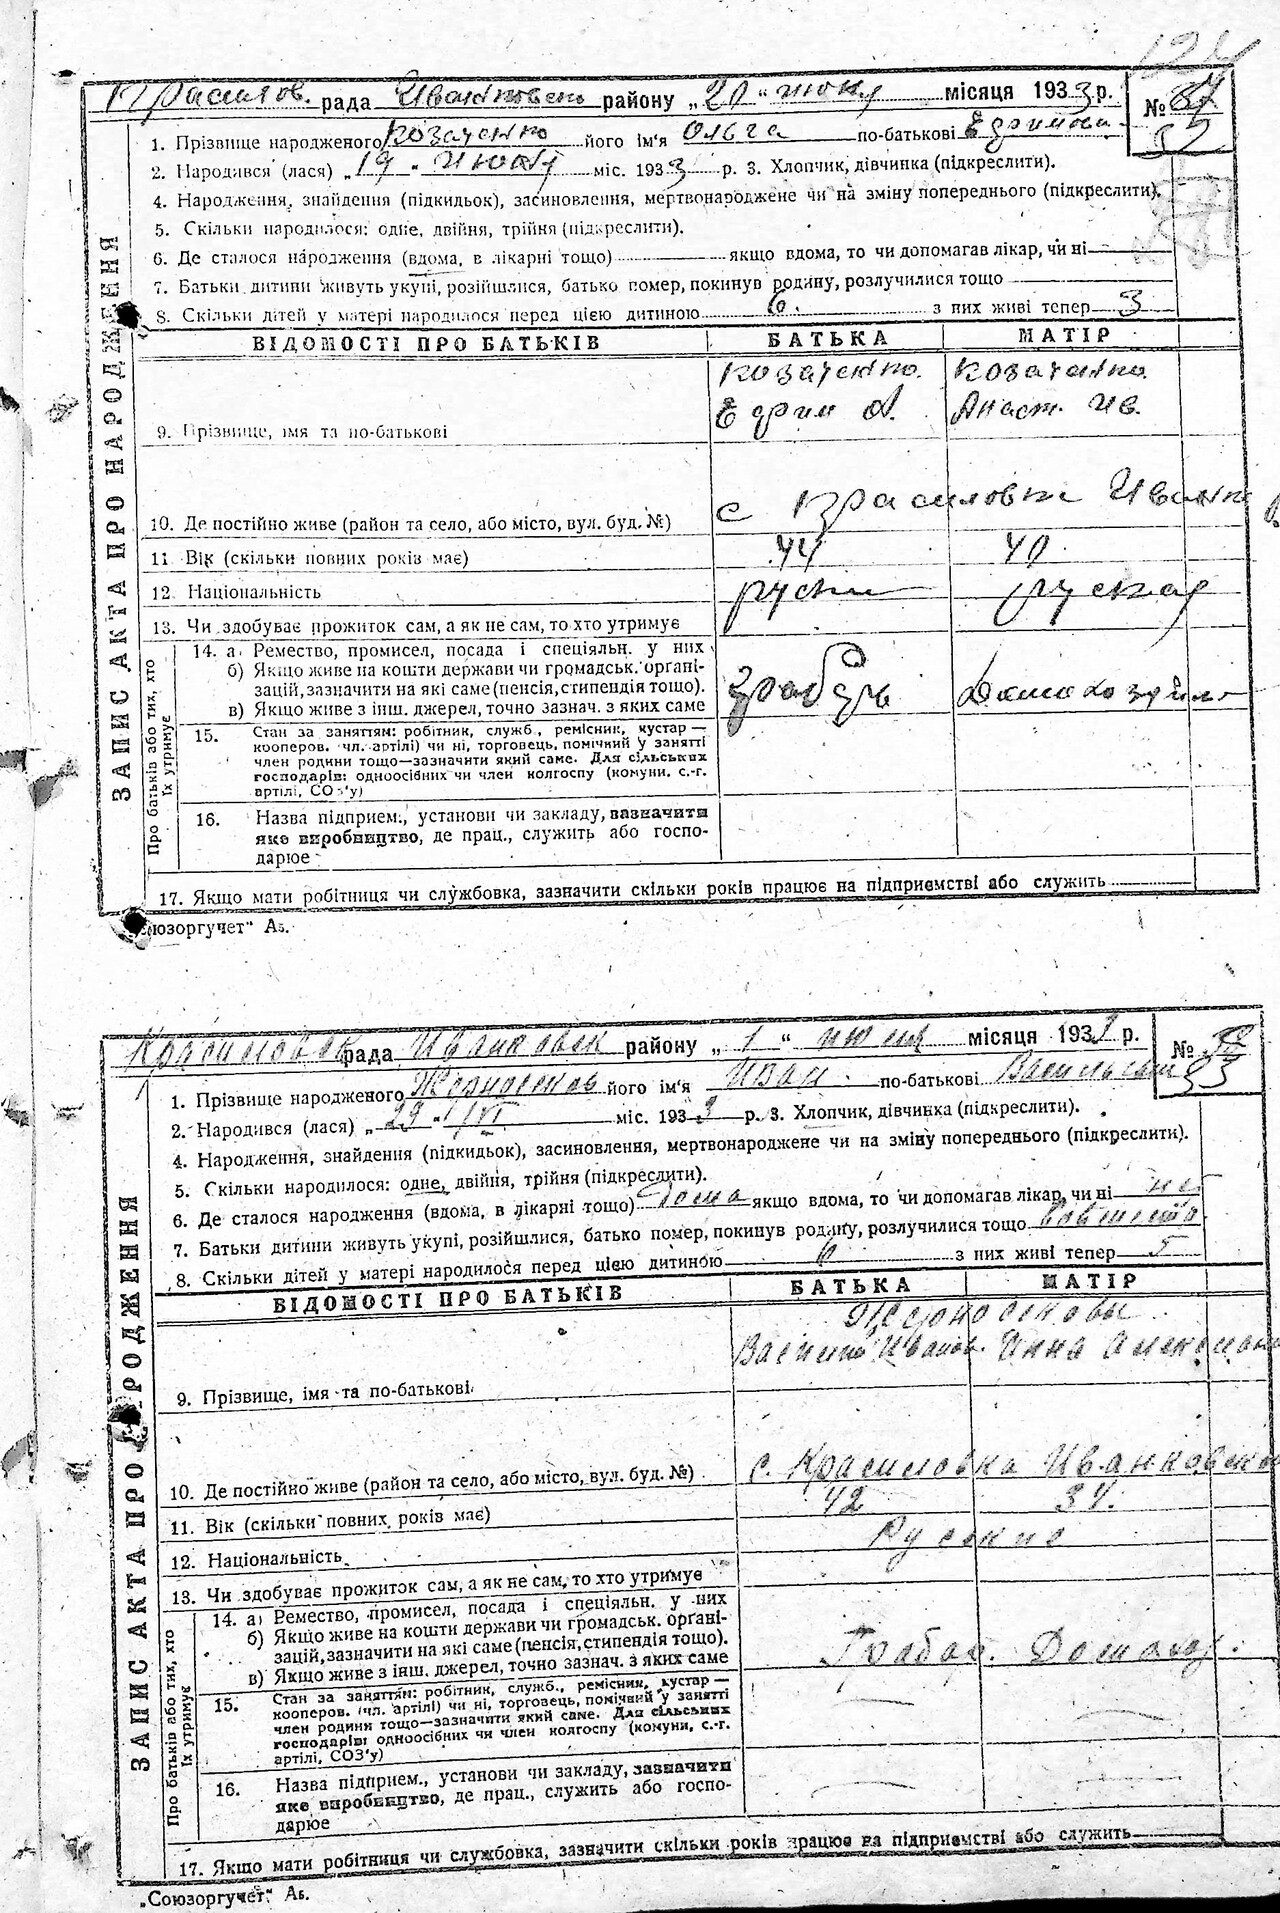 Красилов. рада Иванковск району „20" июня місяця 1933 р.
№
32
1. Прізвище народженого Козаченко його ім'я Ольга по-батькові Ефимовн
2. Народився (лася) „19" Июня міс. 1933 р. 3. Хлопчик, дівчинка (підкреслити).
4. Народження, знайдення (підкидьок), засиновлення, мертвонароджене чи на зміну попереднього (підкреслити).
5. Скільки народилося: одне, двійня, трійня (підкреслити).
6. Де сталося народження (вдома, в лікарні тощо) якщо вдома, то чи допомагав лікар, чи ні
7. Батьки дитини живуть укупі, розійшлися, батько помер, покинув родину, розлучилися тощо
8. Скільки дітей у матері народилося перед цією дитиною 6. з них живі тепер 3
ЗАПИС АКТА ПРО НАРОДЖЕННЯ
ВІДОМОСТІ ПРО БАТЬКІВ БАТЬКА МАТІР
Козаченко. Козаченко
Ефим А. Анаст. Ив.
9. Прізвище, імя та по-батькові
с Красиловка Иванк
10. Де постійно живе (район та село, або місто, вул. буд. №)
11 Вік (скільки повних років має) 44 40
12 Національність руски руская
13. Чи здобуває прожиток сам, а як не сам, то хто утримує
Про батьків або тих, хто їх утримує
14. а) Ремество, промисел, посада і спеціяльн. у них
б) Якщо живе на кошти держави чи громадськ. органі-
зацій, зазначити на які саме (пенсія, стипендія тощо).
в) Якщо живе з інш. джерел, точно зазнач. з яких саме
грабарь
15. Стан за заняттям: робітник, служб., ремісник, кустар —
кооперов. (чл. артілі) чи ні, торговець, помічний у занятті
член родини тощо—зазначити який саме. Для сільських
господарів: одноосібних чи член колгоспу (комуни, с.-г.
артілі, СОЗ'у)
16. Назва підприєм., установи чи закладу, зазначити
яке виробництво, де прац., служить або госпо-
дарює
17. Якщо мати робітниця чи службовка, зазначити скільки років працює на підприємстві або служить
„Союзоргучет" Аз.
Красиловск рада Иванковск району „1" июля місяця 1933 р.
№
33
1. Прізвище народженого його ім'я Иван. по-батькові Васильевич
2. Народився (лася) „29" VI міс. 1933 р. 3. Хлопчик, дівчинка (підкреслити).
4. Народження, знайдення (підкидьок), засиновлення, мертвонароджене чи на зміну попереднього (підкреслити).
5. Скільки народилося: одне, двійня, трійня (підкреслити).
6. Де сталося народження (вдома, в лікарні тощо) дома якщо вдома, то чи допомагав лікар, чи ні нет
7. Батьки дитини живуть укупі, розійшлися, батько помер, покинув родину, розлучилися тощо
8. Скільки дітей у матері народилося перед цією дитиною 6 з них живі тепер 5
ЗАПИС АКТА ПРО НАРОДЖЕННЯ
ВІДОМОСТІ ПРО БАТЬКІВ БАТЬКА МАТІР
Иванов.
9. Прізвище, імя та по-батькові
с. Красиловка Иванковско
10. Де постійно живе (район та село, або місто, вул. буд. №)
11. Вік (скільки повних років має) 42 34.
12. Національність Руские
13. Чи здобуває прожиток сам, а як не сам, то хто утримує
Про батьків або тих, хто їх утримує
14. а) Ремество, промисел, посада і спеціяльн. у них
б) Якщо живе на кошти держави чи громадськ. органі-
зацій, зазначити на які саме (пенсія, стипендія тощо).
в) Якщо живе з інш. джерел, точно зазнач. з яких саме
Грабар. Домахоз.
15. Стан за заняттям: робітник, служб., ремісник, кустар —
кооперов. (чл. артілі) чи ні, торговець, помічний у занятті
член родини тощо—зазначити який саме. Для сільських
господарів: одноосібних чи член колгоспу (комуни, с.-г.
артілі, СОЗ'у)
16. Назва підприєм., установи чи закладу, зазначити
яке виробництво, де прац., служить або госпо-
дарює
17. Якщо мати робітниця чи службовка, зазначити скільки років працює на підприємстві або служить
„Союзоргучет" Аз.